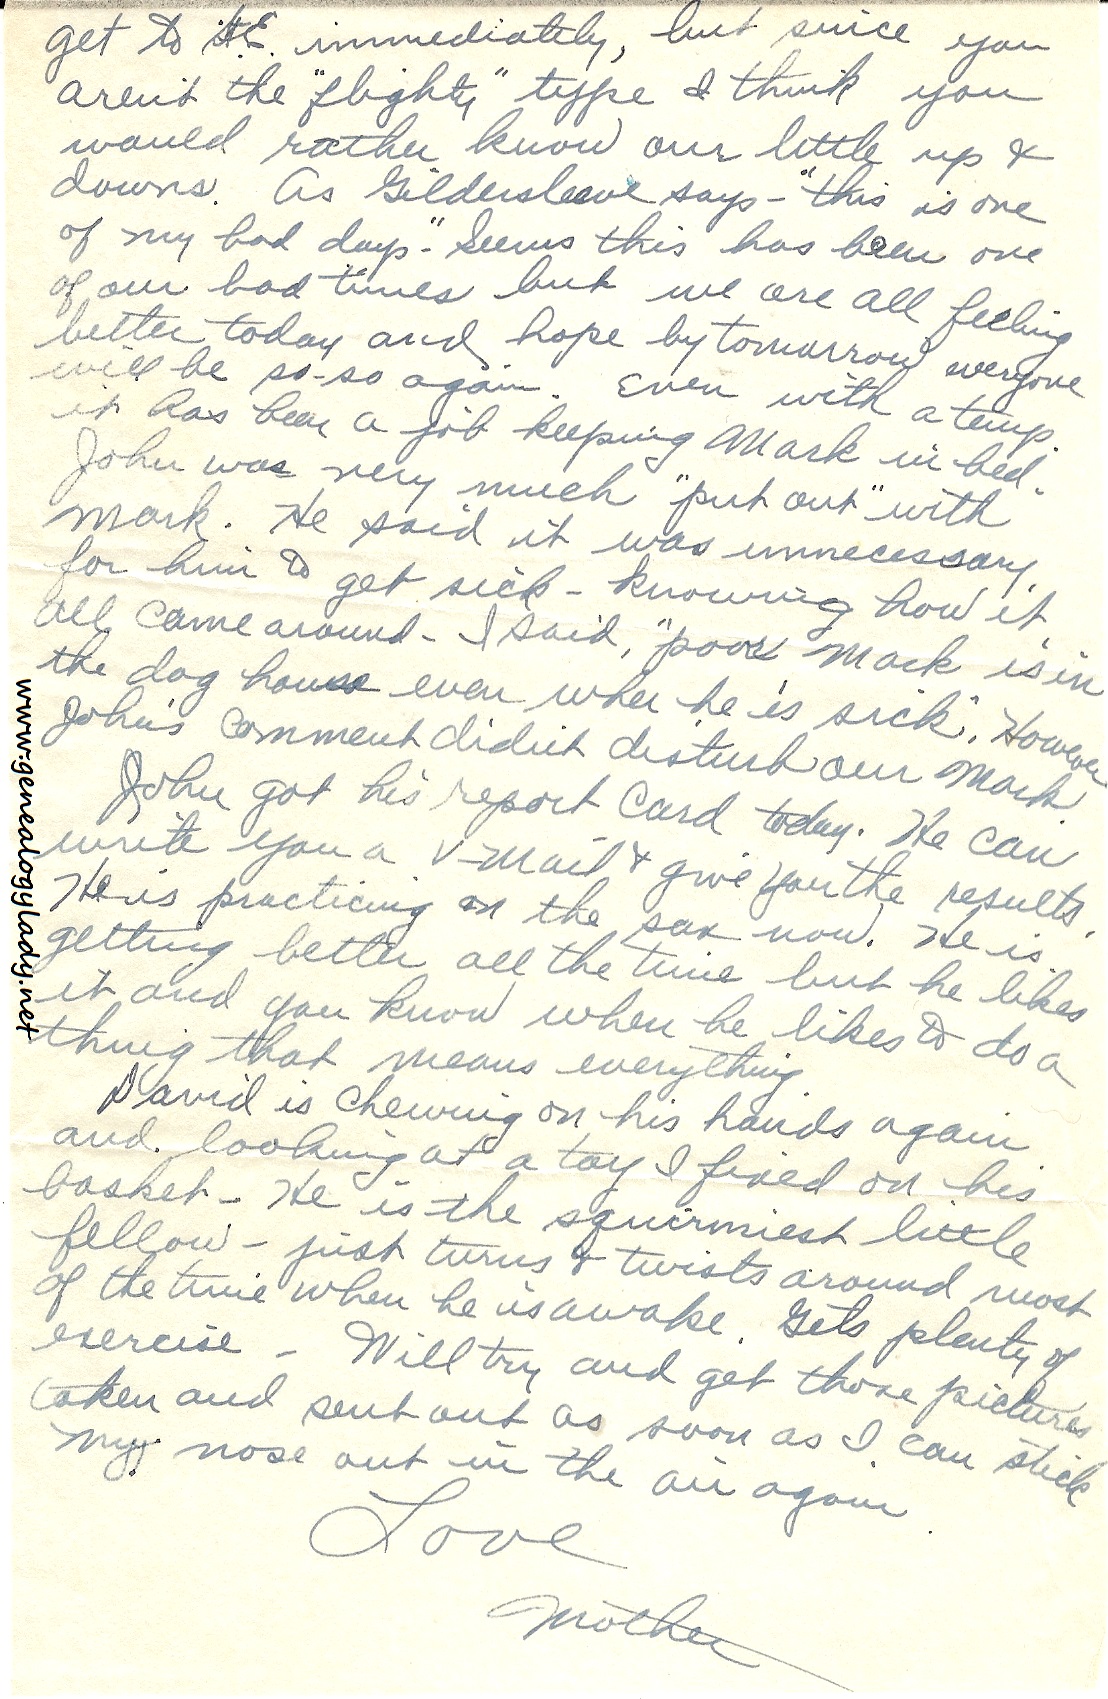 get to H.E. immediately, but since you
aren't the "flighty" type I think you
would rather know our little up &
downs. As Gildersleeve says - "this is one
of my bad days". Seems this has been one
of our bad times but we are all feeling
better today and hope by tomorrow everyone
will be so-so again. Even with a temp.
it has been a job keeping Mark in bed.
John was very much "put out" with
Mark. He said it was unnecessary
for him to get sick - knowing how it
all came around - I said, "poor Mark is in
the dog house even when he is sick". However
John's comment didn't disturb our Mark.
John got his report card today. He can
write you a V-Mail & give you the results.
He is practicing on the sax now. He is
getting better all the time but he likes
it and you know when he likes to do a
thing that means everything.
David is chewing on his hands again
and looking at a toy I fixed on his
basket - He is the squirmiest little
fellow - just turns & twists around most
of the time when he is awake. Gets plenty of
exercise - Will try and get those pictures
taken and sent out as soon as I can stick
my nose out in the air again.
Love
Mother
www.genealogylady.net